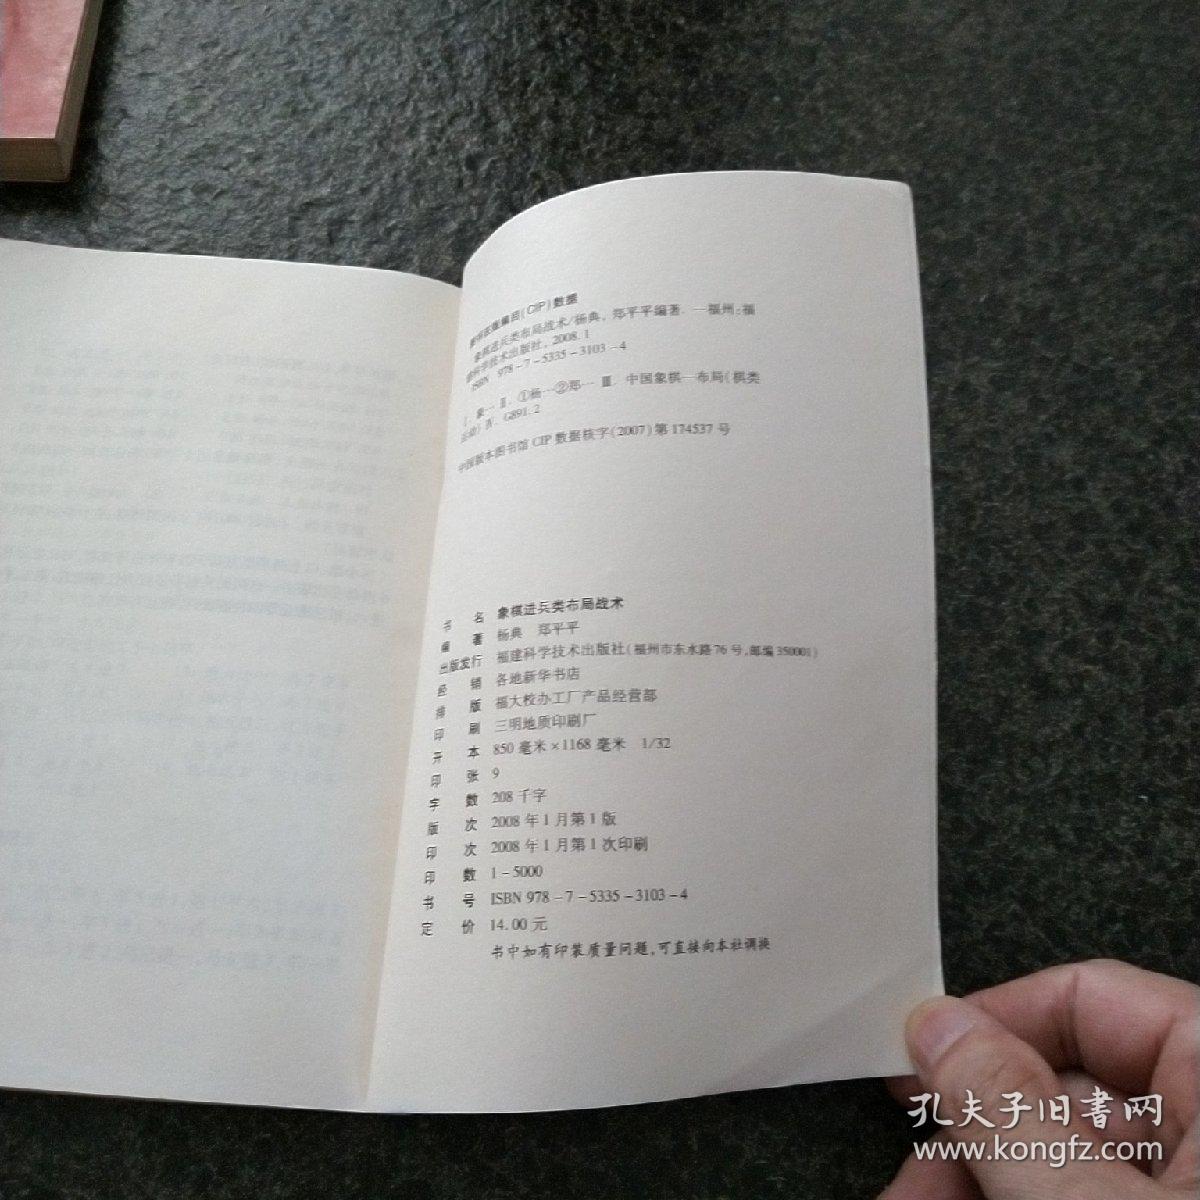 图书在版编目(CIP)数据
象棋进兵类布局战术/杨典,郑平平编著.—福州:福
建科学技术出版社,2008.1
ISBN 978-7-5335-3103-4
Ⅰ.象… Ⅱ.①杨…②郑… Ⅲ.中国象棋—布局(棋类
运动) Ⅳ.G891.2
中国版本图书馆CIP数据核字(2007)第174537号
书 名 象棋进兵类布局战术
编 著 杨典 郑平平
出版发行 福建科学技术出版社(福州市东水路76号,邮编350001)
经 销 各地新华书店
排 版 福大校办工厂产品经营部
印 刷 三明地质印刷厂
开 本 850毫米×1168毫米 1/32
印 张 9
字 数 208千字
版 次 2008年1月第1版
印 次 2008年1月第1次印刷
印 数 1-5000
书 号 ISBN 978-7-5335-3103-4
定 价 14.00元
书中如有印装质量问题,可直接向本社调换
孔夫子旧书网
www.kongfz.com